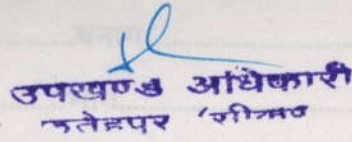 उपखण्ड अधिकारी
फतेहपर